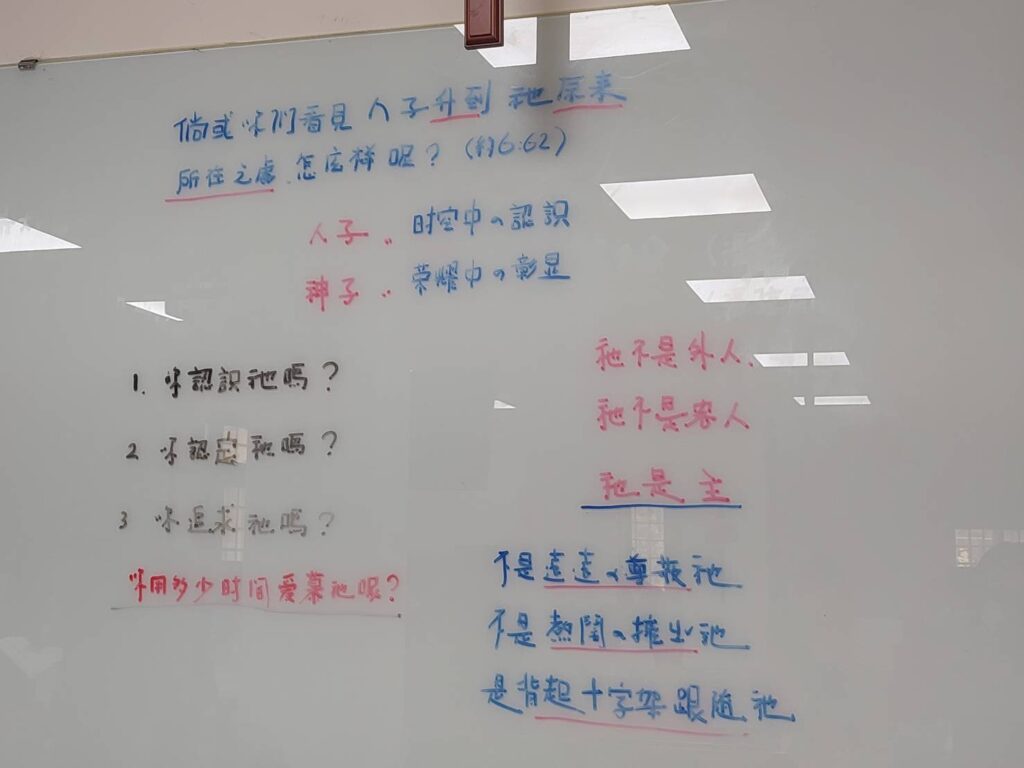 倘或你们看見人子升到祂原来
所在之處怎么样呢？(約6:62)
人子：时空中の認識
神子：荣耀中の彰显
1. 你認識祂嗎？
2 你認定祂嗎？
3 你追求祂嗎？
你用多少时间爱慕祂呢？
祂不是外人.
祂不是客人
祂是主
不是遠遠の尊敬祂
不是熱鬧の擁出祂
是背起十字架跟随祂